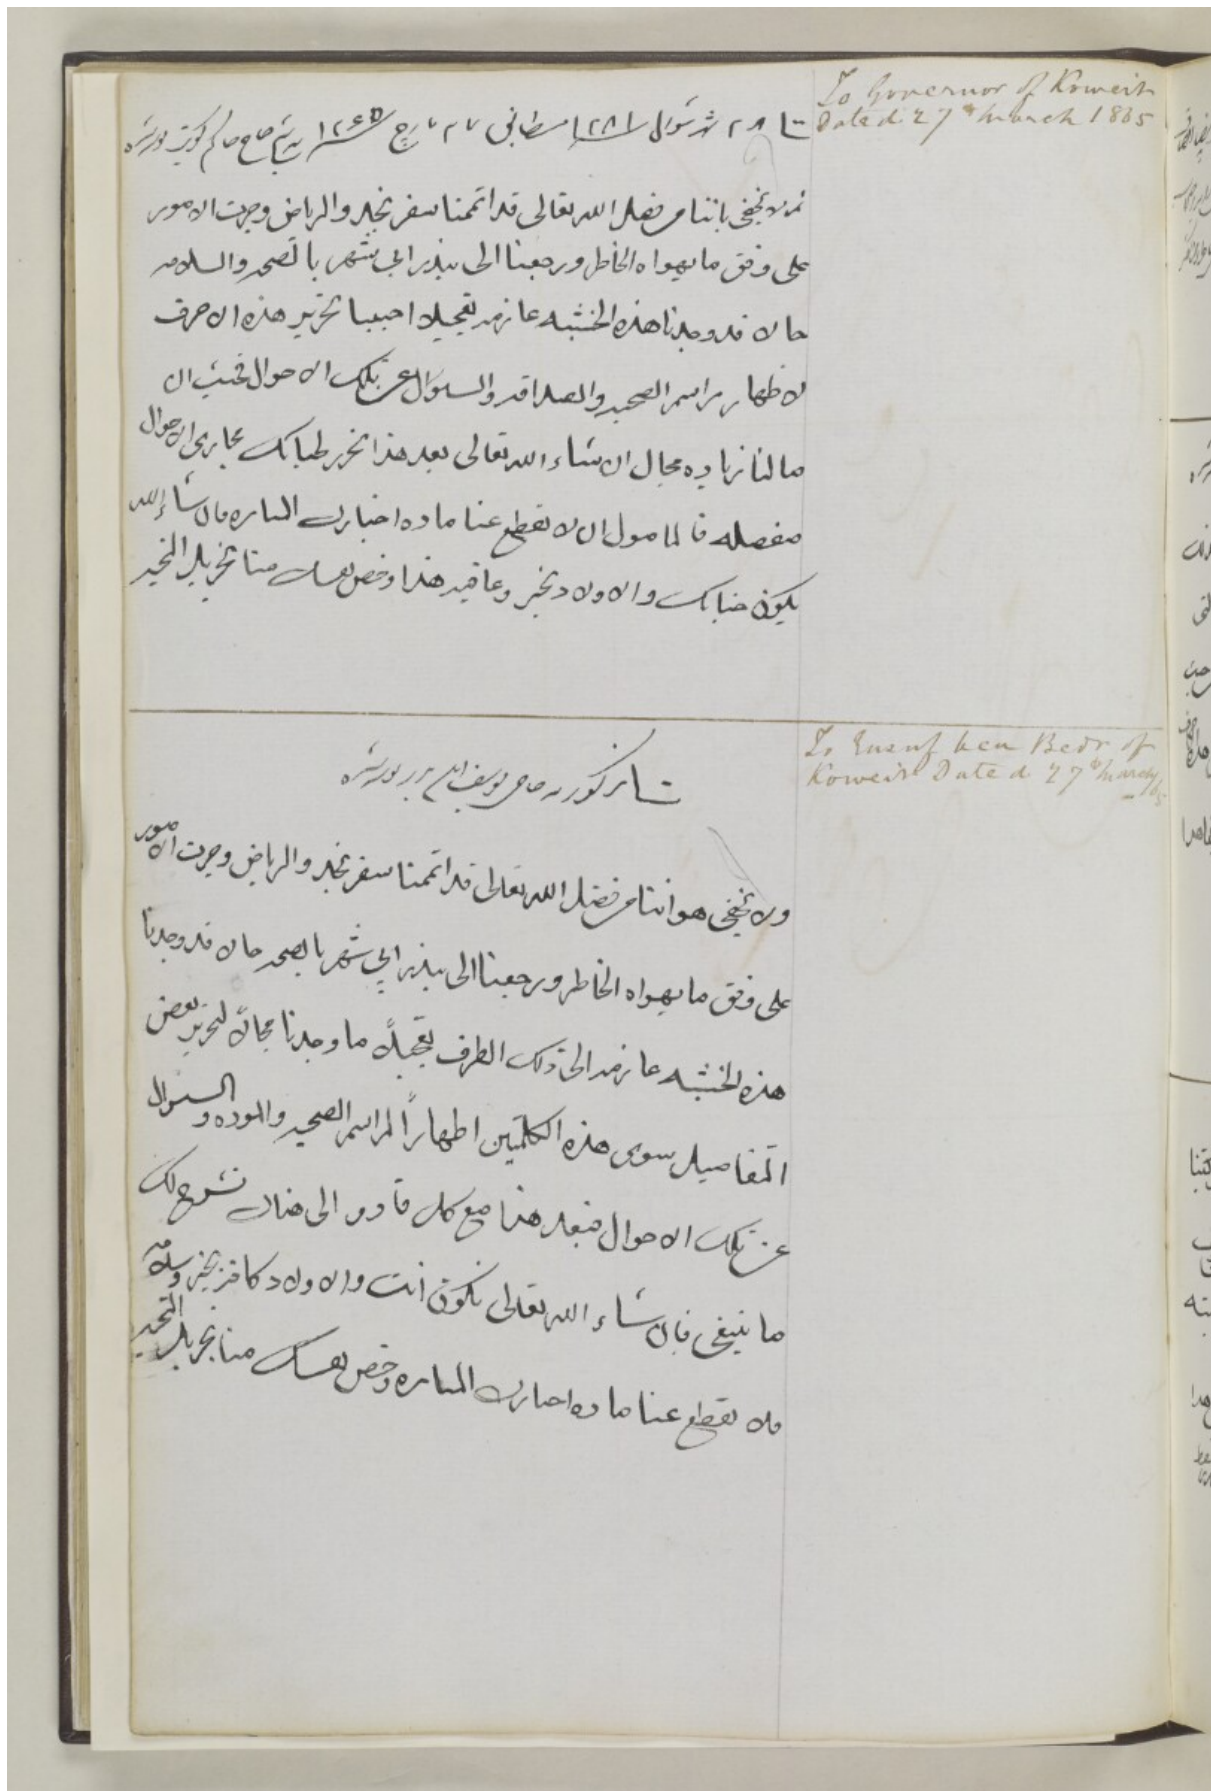 To Governor of Koweit
Dated 27th March 1865
٢٨ شهر شوال ١٢٨١ مطابق ٢٧ مارچ ١٨٦٥ حاكم كويت نوشته
ثم لا يخفى باننا من فضل الله تعالى قد اتممنا سفر نجد والرياض وجرت الامور
على وفق ما يهواه الخاطر ورجعنا الى بندر ابي شهر بالصحه والسلامه
حالا قد وجدنا هذه الخشبه عازمه تعجيلا احببنا تحرير هذه الاحرف
لاظهار مراسم المحبه والصداقه والسئوال عن تلك الاحوال فحيث ان
ما لنا زياده مجال ان شاء الله تعالى بعد هذا نحرر لجنابك مجارى الاحوال
مفصله فالمامول ان لا تقطع عنا ماده اخبارك الساره فان شاء الله
يكون جنابك والاولاد بخير وعافيه هذا وخص نفسك منا بجزيل التحيه
To Eusuf ben Bedr of
Koweit Dated 27th March/65
حاجى يوسف ابن بدر نوشته
ولا يخفى هو اننا من فضل الله تعالى قد اتممنا سفر نجد والرياض وجرت الامور
على وفق ما يهواه الخاطر ورجعنا الى بندر ابي شهر بالصحه حالا قد وجدنا
هذه الخشبه عازمه الى ذلك الطرف تعجيلاً ما وجدنا مجالاً لتحرير بعض
التفاصيل سوى هذه الكلمتين اظهاراً لمراسم المحبه والموده والسئوال
عن تلك الاحوال فبعد هذا مع كل قادم الى هناك نشرح لك
ما ينبغى فان شاء الله تعالى تكون انت والاولاد كافة بخير وسلامه
فلا تقطع عنا ماده اخبارك الساره وخص نفسك منا بجزيل التحيه